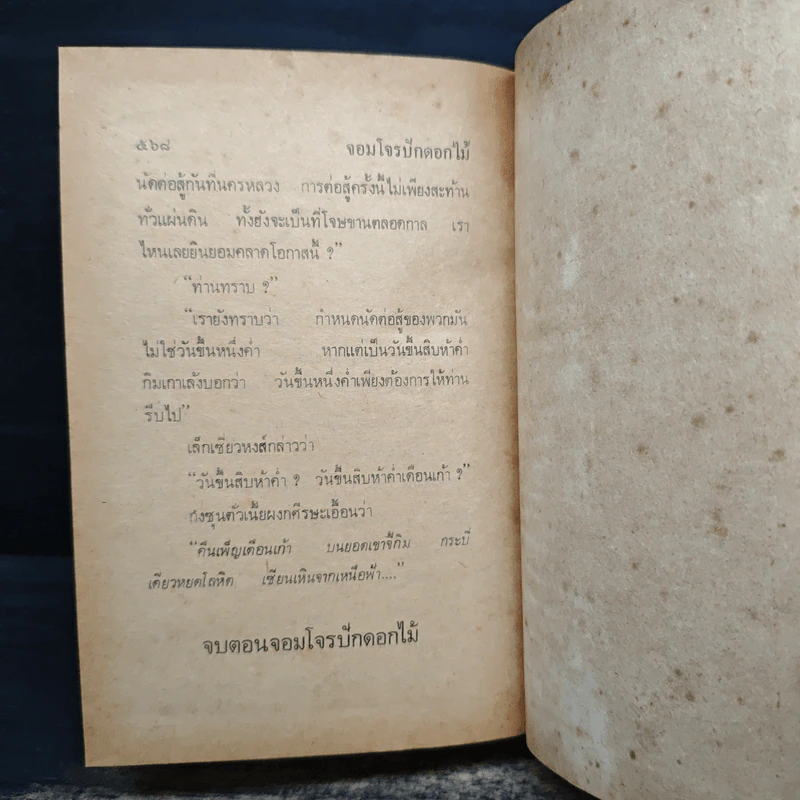 ๕๖๘ จอมโจรปักดอกไม้
นัดต่อสู้กันที่นครหลวง การต่อสู้ครั้งนี้ไม่เพียงสะท้าน
ทั่วแผ่นดิน ทั้งยังจะเป็นที่โจษขานตลอดกาล เรา
ไหนเลยยินยอมคลาดโอกาสนี้ ?”
“ท่านทราบ ?”
“เรายังทราบว่า กำหนดนัดต่อสู้ของพวกมัน
ไม่ใช่วันขึ้นหนึ่งค่ำ หากแต่เป็นวันขึ้นสิบห้าค่ำ
กิมเกาเล้งบอกว่า วันขึ้นหนึ่งค่ำเพียงต้องการให้ท่าน
รีบไป”
เล็กเซียวหงส์กล่าวว่า
“วันขึ้นสิบห้าค่ำ ? วันขึ้นสิบห้าค่ำเดือนเก้า ?”
กงซุนตัวเนี้ยผงกศีรษะเอื้อนว่า
“คืนเพ็ญเดือนเก้า บนยอดเขาจี้กิม กระบี่
เดียวหยดโลหิต เซียนเหินจากเหนือฟ้า....”
จบตอนจอมโจรปักดอกไม้